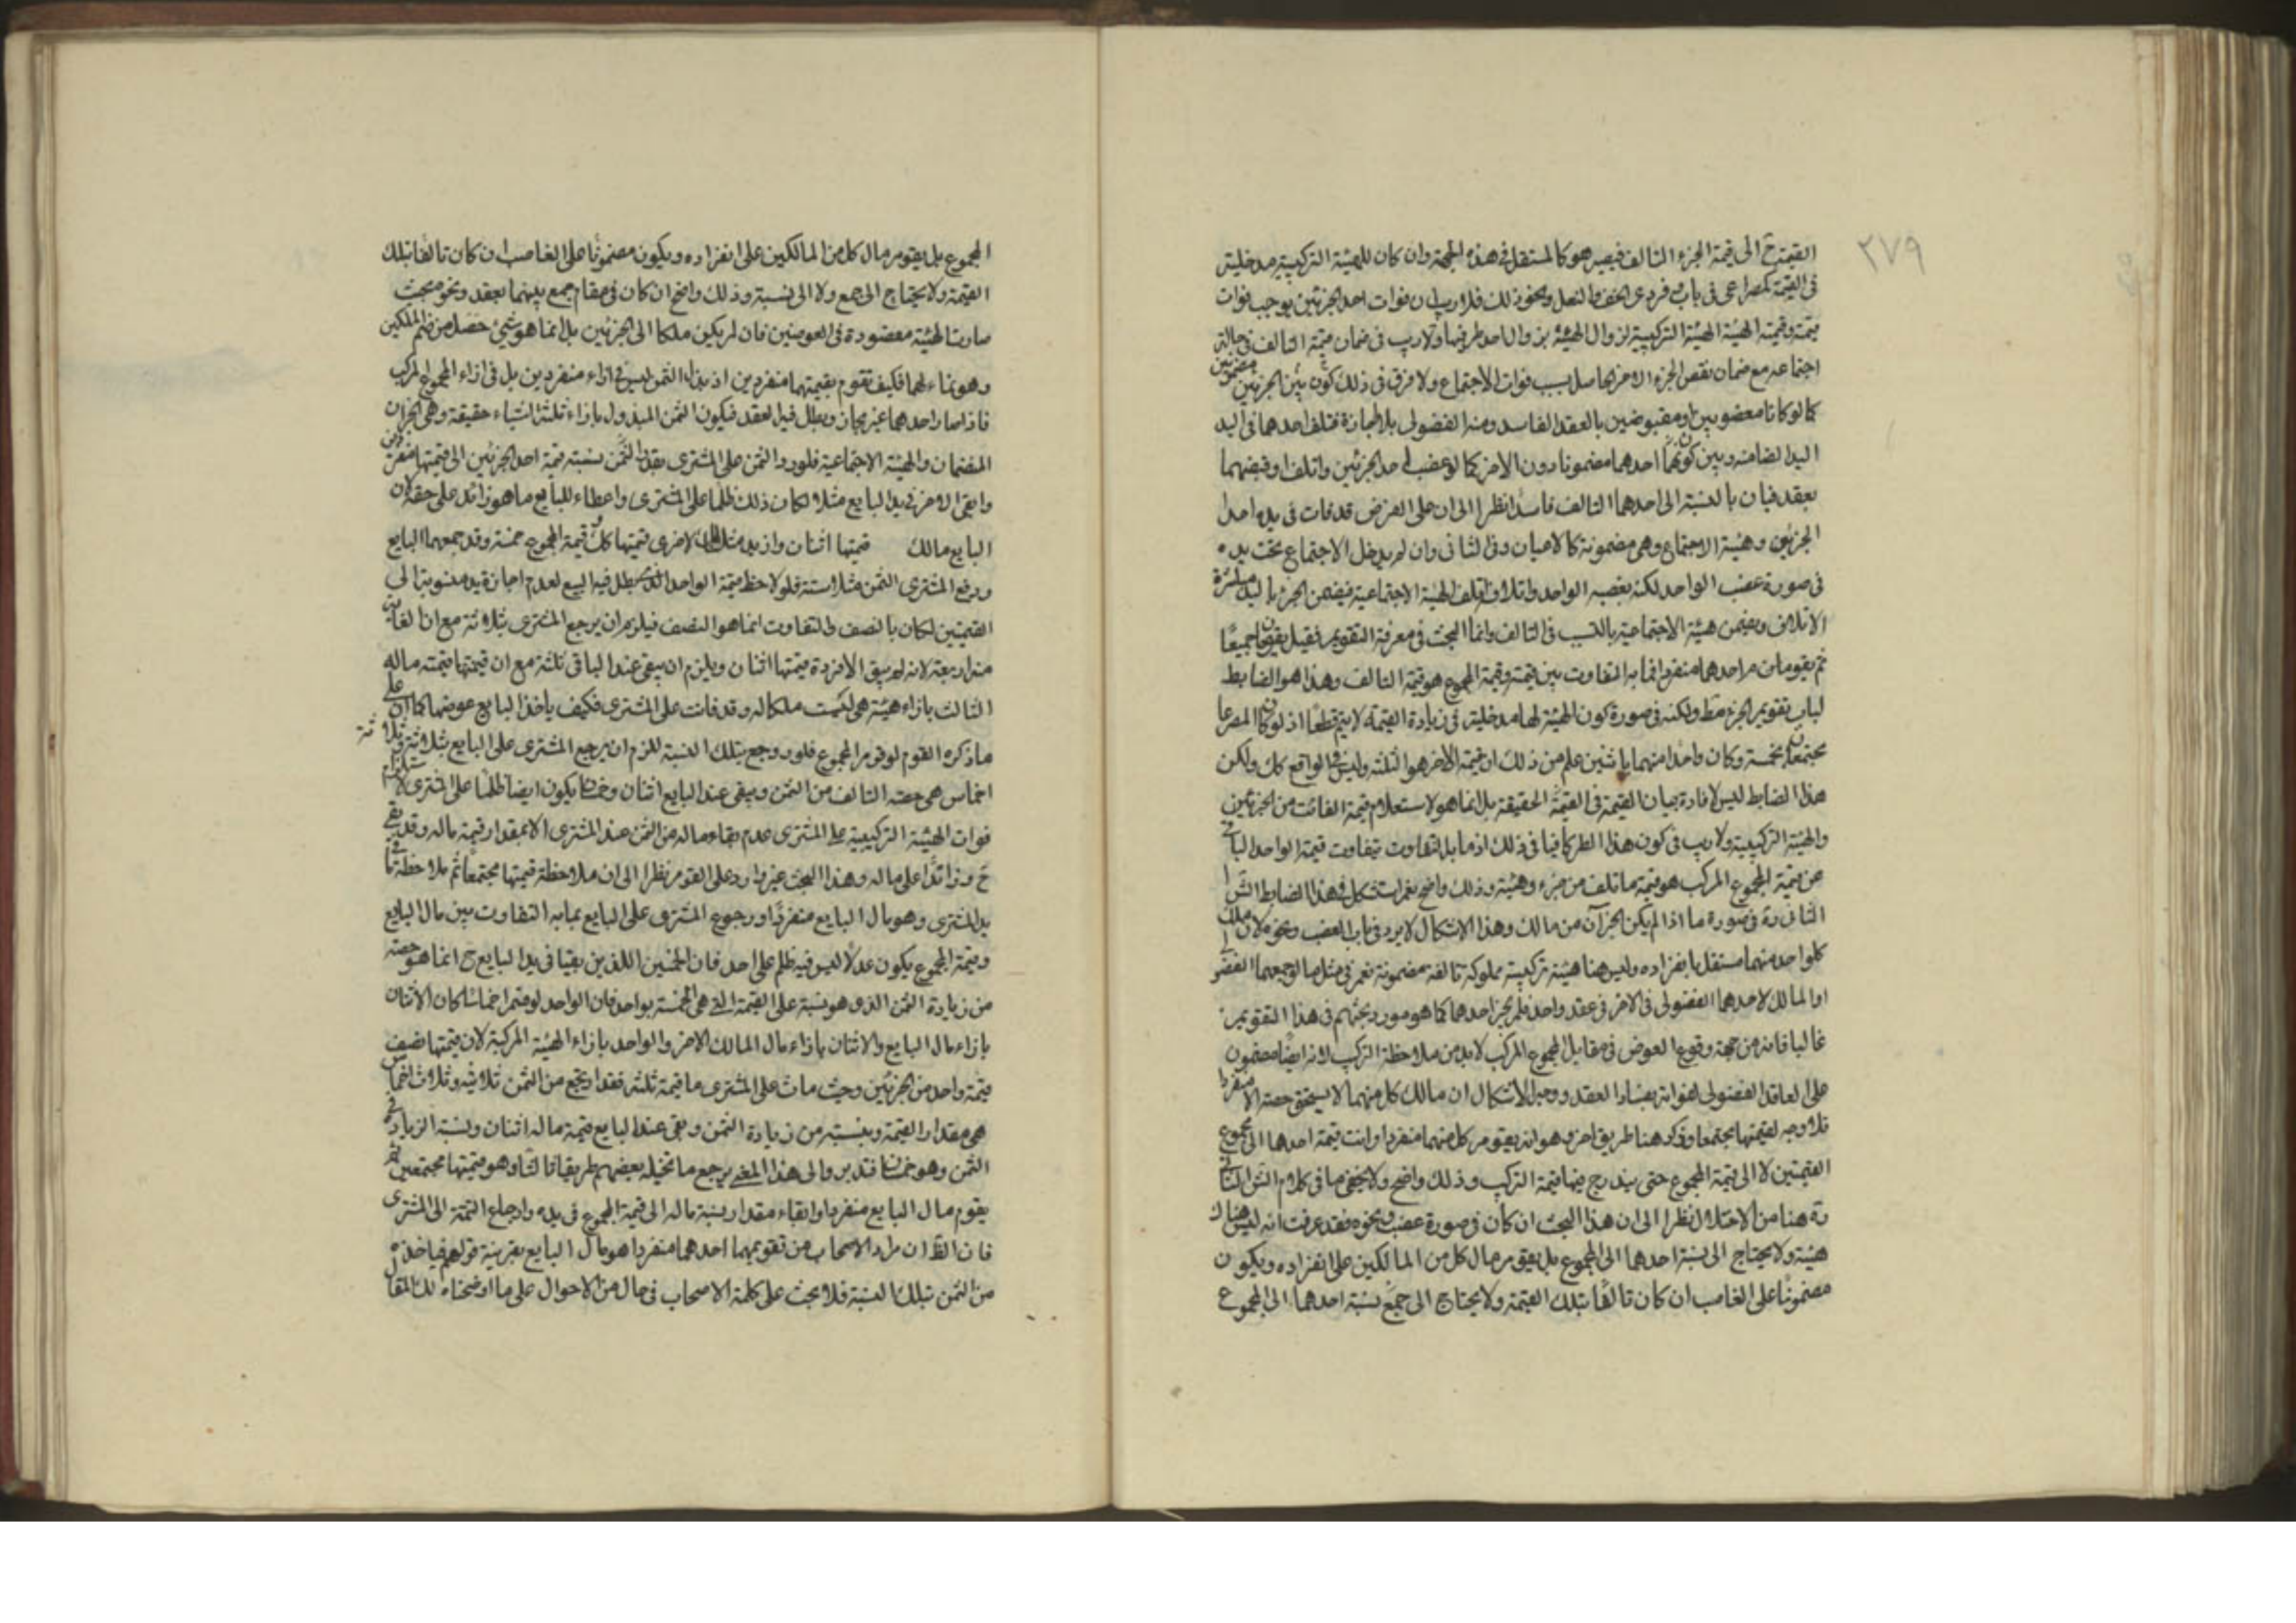 ٢٧٩
القيمة ح الى قيمة الجزء التالف فيصير هو كالمستقل فى هذه الجهة وان كان للهيئة التركيبية مدخلية
فى القيمة كمصراعى فى باب وفردى الخف والنعل ونحو ذلك فلا ريب ان فوات احد الجزئين يوجب فوات
قيمته وقيمة الهيئة الهيئة التركيبية لزوال الهيئة بزوال احد طرفيها ولا ريب فى ضمان قيمة التالف فى حالة
اجتماعه مع ضمان نقص الجزء الاخر بسبب فوات الاجتماع ولا فرق فى ذلك كون بين الجزئين مضمونين
كما لو كانا مغصوبين او مقبوضين بالعقد الفاسد ومنه الفضولى بلا اجازة فتلف احدهما فى اليد
اليد الضامنه وبين كون احدهما مضمونا دون الاخر كما لو غصب احد الجزئين واتلف او قبضهما
بعقد فبان بالنسبة الى احدهما التالف فاسدا نظرا الى ان على الفرض قد فات فى يده احد
الجزئين وهيئة الاجتماع وهى مضمونة كالاعيان وفى الثانى وان لم يدخل الاجتماع تحت يده
فى صورة غصب الواحد لكنه بغصبه الواحد واتلافه اتلف الهيئة الاجتماعية فيضمن الجزء باليد مباشرة
الاتلاف ويضمن هيئة الاجتماعية بالتسبيب فى التالف وانما البحث فى معرفة التقويم فقيل يقومان جميعا
ثم يقومان احدهما منفردا فما به التفاوت بين قيمته وقيمة المجموع هو قيمة التالف وهذا هو الضابط
لباب تقويم الجزء مط ولكنه فى صورة كون الهيئة لها مدخلية فى زيادة القيمة لا يتم قطعا اذ لو كان المصراعا
مجتمعان بخمسة وكان واحدا منهما باثنين علم من ذلك ان قيمة الاخر هو الثلثة وليس فى الواقع كك ولكن
هذا الضابط ليس لافادة بيان القيمة فى القيمة الحقيقة بل انما هو لاستعلام قيمة الفائت من الجزئين
والهيئة التركيبية ولا ريب فى كون هذا الطر كافيا فى ذلك اذ ما به التفاوت بتفاوت قيمة الواحد الباقى
عن قيمة المجموع المركب هو قيمة ما تلف من جزء وهيئة وذلك واضح نعم استشكل فى هذا الضابط الش
الثانى ره فى صورة ما اذا لم يكن الجزآن من مالك وهذا الاشكال لا يرد فى باب الغصب ونحوه لان ملك
كل واحد منهما مستقل بانفراده وليس هنا هيئة تركيبية مملوكة تالفة مضمونة نعم فى مثل ما لو جمعهما الفضولى
او المالك لاحدهما الفضولى فى الاخر فى عقد واحد فلم يجز احدهما كما هو مورد بحثهم فى هذا التقويم
غالبا فانه من جهة وقوع العوض فى مقابل المجموع المركب لا بد من ملاحظة التركب لانه ايضا مضمون
على العاقد الفضولى لفواته بفساد العقد ووجه الاشكال ان مالك كل منهما لا يستحق حصته الا منفردا
فلا وجه لقيمتها مجتمعا وذكر هنا طريق اخر وهو انه يقوم كل منهما منفردا وانت قيمة احدها الى مجموع
القيمتين لا الى قيمة المجموع حتى يندرج فيها قيمة التركب وذلك واضح ولا يخفى ما فى كلام الش الثانى
ره هنا من الاختلال نظرا الى ان هذا البحث ان كان فى صورة غصب ونحوه فقد عرفت انه ليس هناك
هيئة ولا يحتاج الى نسبة احدها الى المجموع بل يقوم مال كل من المالكين على انفراده ويكون
مضمونا على الغاصب ان كان تالفا بتلك القيمة ولا يحتاج الى جمع نسبة احدهما الى المجموع
المجموع بل يقوم مال كل من المالكين على انفراده ويكون مضمونا على الغاصب ان كان تالفا بتلك
القيمة ولا يحتاج الى جمع ولا الى نسبة وذلك واضح ان كان فى مقام جمع بينهما بعقد ونحو بحيث
صارت الهيئة مقصودة فى العوضين فان لم يكن ملكا الى الجزئين بل انما هو شئ حصل من ضم الملكين
وهو نماء لهما فكيف تقوم بقيمتهما منفردين اذ بذل الثمن ليس فى ازاء منفردين بل فى ازاء المجموع المركب
فاذا صار احدهما غير مجاز وبطل فيه العقد فيكون الثمن المبذول بازاء ثلثة اشياء حقيقة وهى الجزان
المنضمان والهيئة الاجتماعية فلو رد الثمن على المشترى بقدر الثمن بنسبة قيمة احد الجزئين الى قيمتها منفردين
وابقى الاخر فى يد البايع مثلا لكان ذلك ظلما على المشترى واعطاء للبايع ما هو زائد على حقه لان
البايع مالك قيمتها اثنان وازيد مثلا الاخرى قيمتها كك وقيمة المجموع خمسة وقد جمعهما البايع
ودفع المشترى الثمن مثلا ستة فلو لاحظ قيمة الواحد الذى بطل فيه البيع لعدم اجازة يد منسوبة الى
القيمتين لكان بالنصف والتفاوت انما هو النصف فيلزم ان يرجع المشترى بثلاثة مع ان الفايت
منه اربعة لانه لم يبق الا فردة قيمتها اثنان ويلزم ان يبقى عند الباقى ثلثة مع ان قيمتها قيمته ماله
الثالث بازاء هيئة هى ليست ملكا له وقد فات على المشترى فكيف ياخذ البايع عوضها كما ان على
ما ذكره القوم لو قوم المجموع فلو رجع بتلك النسبة للزم ان يرجع المشترى على البايع بثلاثة وثلاثة
اخماس هى حصة التالف من الثمن ويبقى عند البايع اثنان وخمسا يكون ايضا ظلما على المشترى لاستلزام
فوات الهيئة التركيبية على المشترى عدم بقاء ماله من الثمن عند المشترى الا بمقدار قيمة ماله وقد بقى
ح وزائدا على ماله وهذا البحث غير وارد على القوم نظرا الى ان ملاحظة قيمتها مجتمعا ثم ملاحظة ما فى
يد المشترى وهو مال البايع منفردا ورجوع المشترى على البايع بما به التفاوت بين مال البايع
وقيمة المجموع يكون عدلا ليس فيه ظلم على احد فان الخمسين اللذين بقيا فى يد البايع ح انما هو حصته
من زيادة الثمن الذى هو نسبة على القيمة التى هى الخمسة بواحد فان الواحد لو قسم اخماسا كان الاثنان
بازاء مال البايع والاثنان بازاء مال المالك الاخر والواحد بازاء الهيئة المركبة لان قيمتها نصف
قيمة واحد من الجزئين وحيث مات على المشترى ما قيمة ثلثه فقد ارتجع من الثمن ثلاثة وثلاث اخماس
هى مقدار القيمة وبنسبته من زيادة الثمن وبقى عند البايع قيمة ماله اثنان ونسبة الزيادة فى
الثمن وهو خمسا فتدبر والى هذا المعنى يرجع ما تخيله بعضهم طريقا ثالثا وهو قيمتها مجتمعين ثم
يقوم مال البايع منفردا وابقاء مقدار نسبة ماله الى قيمة المجموع فى يده وارجاع التتمة الى المشترى
فان الظ ان مراد الاصحاب من تقويمهما احدهما منفردا هو مال البايع بقرينة قولهم فياخذه
من الثمن بتلك النسبة فلا بحث على كلمة الاصحاب فى حال من الاحوال على ما اوضحناه لك المقال